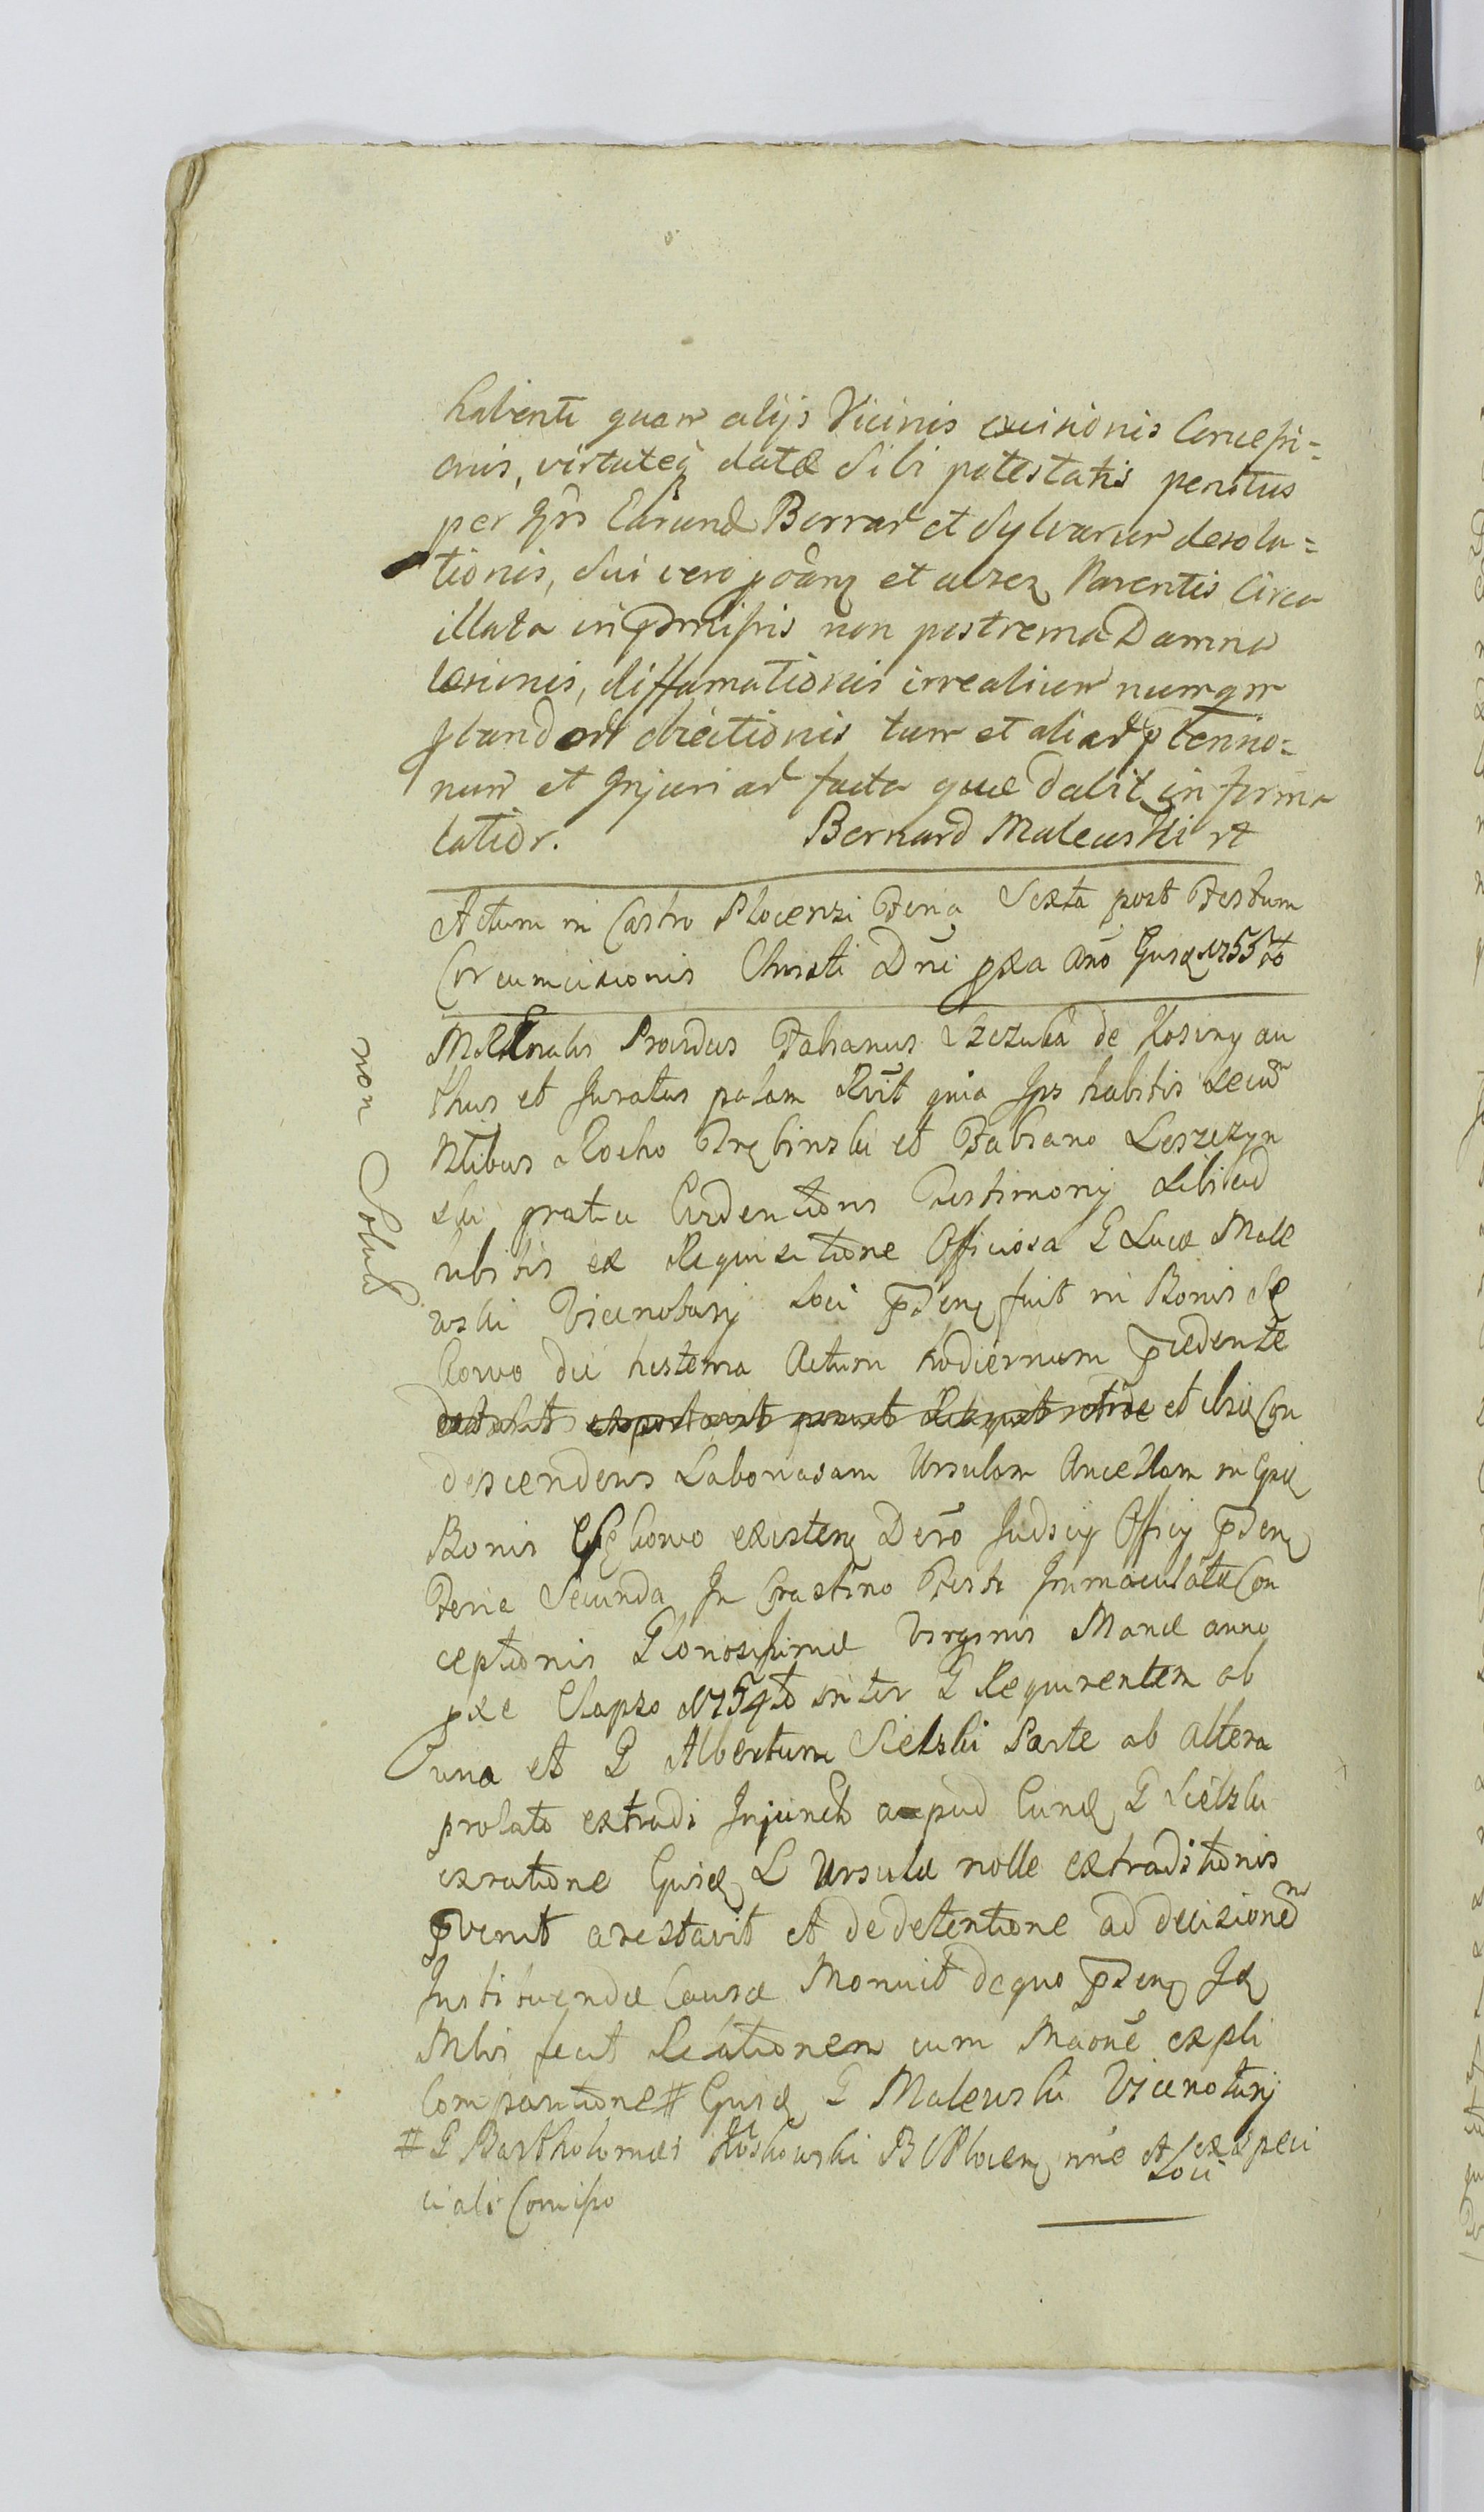 habenti quam alijs Vicinis excisionis Concessi=
onis, virtuteq datæ Sibi potestatis penitus
per Ipsū Earund Borrar et Sylvarum desola=
tionis, Sui vero et Parentis Circa
illata in pmissis non postrema Damna
læsionis, diffamationis irrealium numqm
pband obiectionis tum et aliar p
num et Injuriar facta quæ dabit in forma
latior. Bernard Malewski
Actum in Castro Plocensi Feria Sexta post Festum
Circumcisionis Christi Dni pxa Ano Eiusd 1755to
Providus Fabianus Szczuka de Kosiny au
thus et Juratus palam Rvit quia Ips habitis Secum
Ntibus Rocho Grębinski et Fabiano Leszczyn
ski gratia Evidentioris Testimonij Sibi ad
hibitis ex Requisitione Officiosa G Lucæ Male
wski Vicenotarij Loci pdeng fuit in Bonis Sę
kowo die hesterna Actum hodiernum pcedente
et ibiq Con
descendens Laboriosam Ursulam Ancellam in ijsd
Bonis Sękowo existen Decro Judicij Officij pdeng
Feria Secunda In Crastino Festi Immaculatæ Con
ceptionis Gloriosissimæ Virginis Mariæ anno
pxe Elapso 1754to inter G Requirentem ab
una et G Albertum Sielski Parte ab altera
prolato extradi Injunct apud Eund G Sielski
exratione Eiusd L Ursulæ nolle extraditionis
pvenit arestavit et de detentione ad decisionem
Instituendæ Causæ Monuit de quo pdeng Id
Mlis fecit Relationem cum Maone expli
Comparitione # Eiusd G Malewski Vicenotarij
# G Bartholomei Roskowski B Plocen nne et ex spe
Loci
ciali Comisso
non Solvit